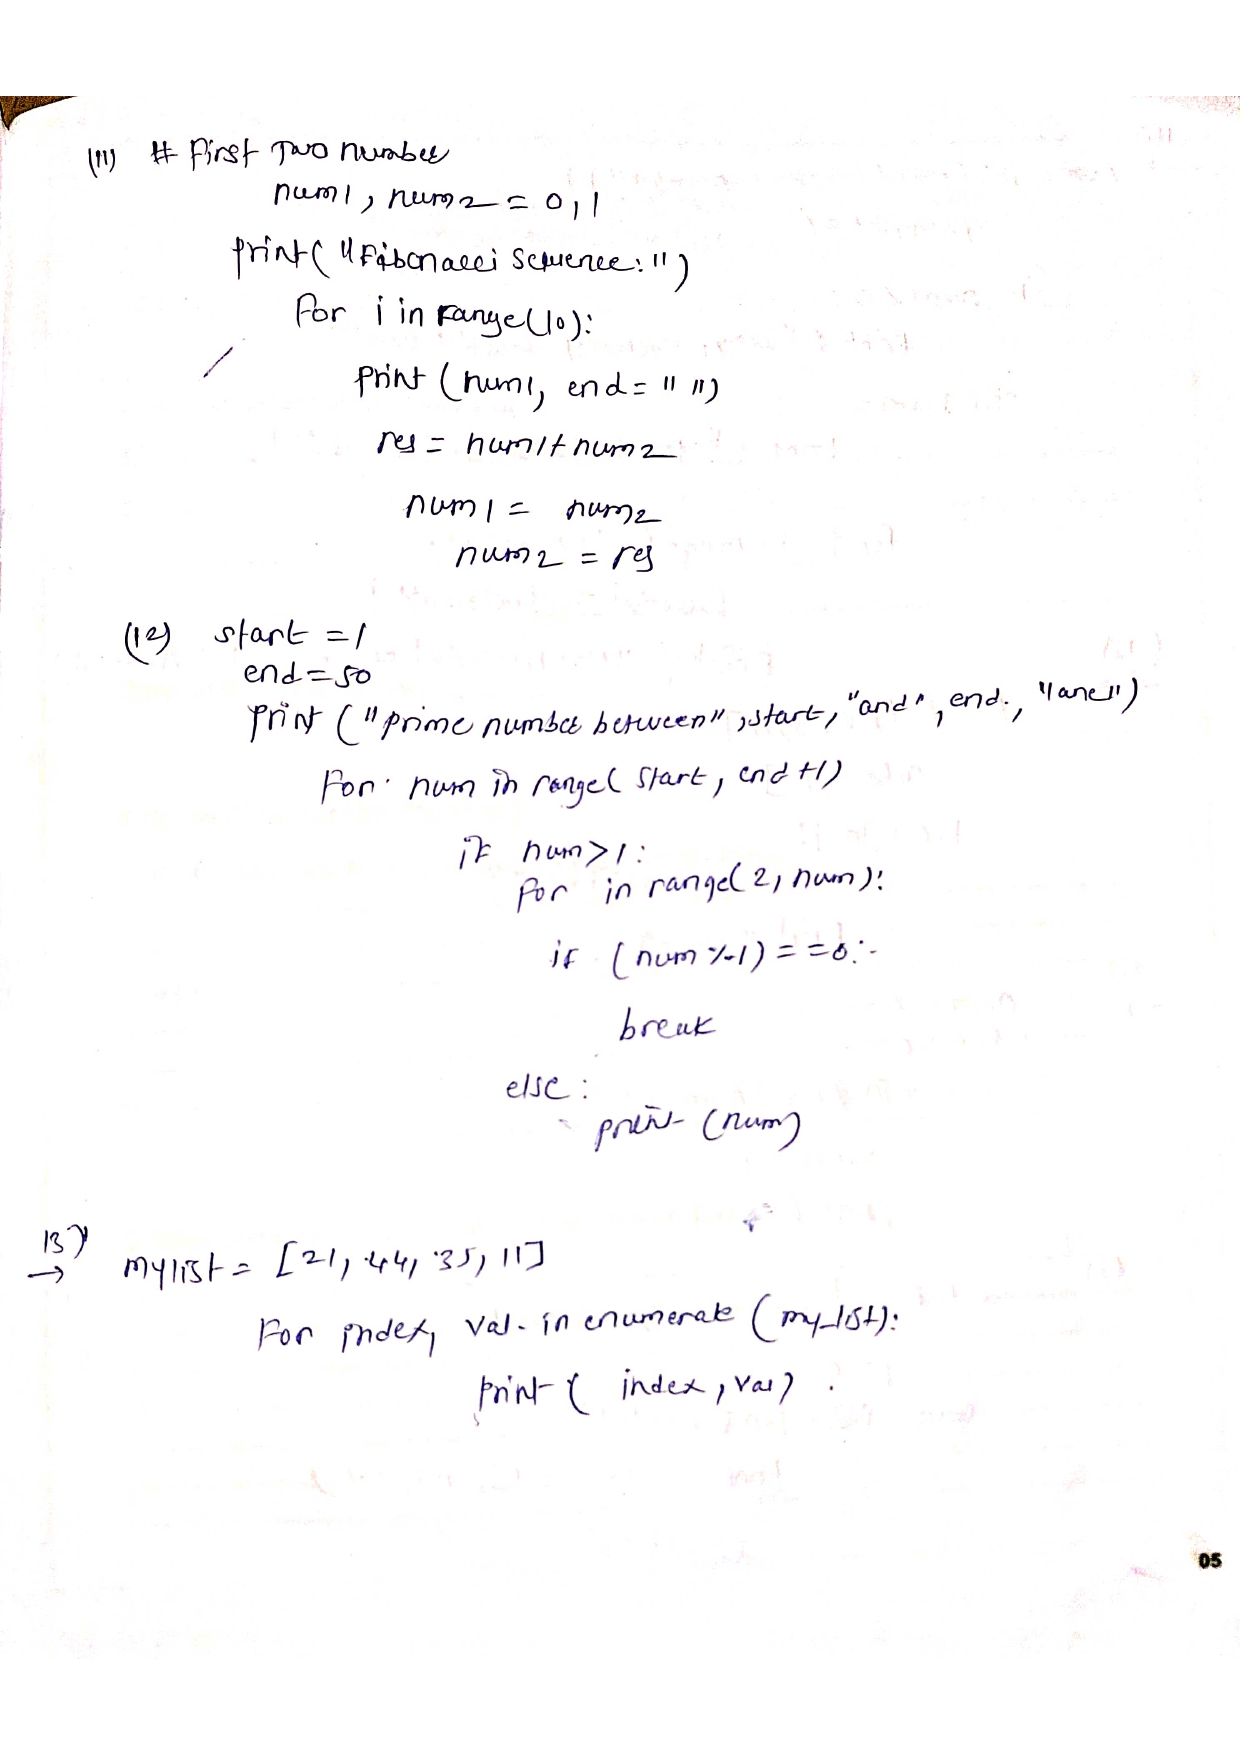 (11) # First Two number
num1, num2 = 0, 1
print("Fibonacci Sequence:")
For i in range(10):
print (num1, end= " ")
res = num1+num2
num1 = num2
num2 = res
(12) start =1
end=50
print ("prime number between", start, "and", end., "are")
For num in range( start, end +1)
if num>1:
for in range(2, num):
if (num %-1) = =0:-
break
else:
print (num)
13)
→ mylist = [21, 44, 35, 11]
For index, val. in enumerate (my_list):
print ( index, val) .
05